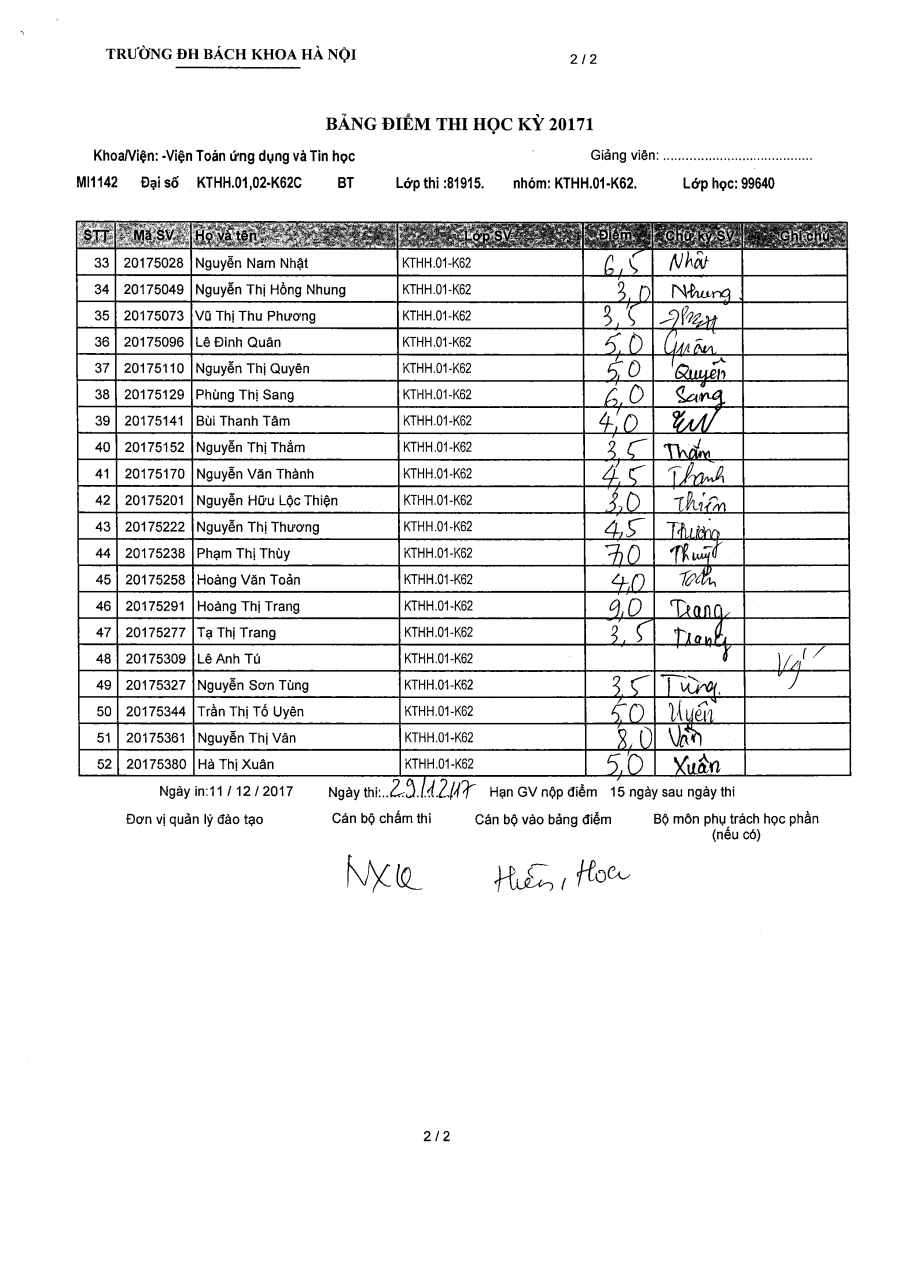 TRƯỜNG ĐH BÁCH KHOA HÀ NỘI 2 / 2
BẢNG ĐIỂM THI HỌC KỲ 20171
Khoa/Viện: -Viện Toán ứng dụng và Tin học Giảng viên: ........................................
MI1142 Đại số KTHH.01,02-K62C BT Lớp thi :81915. nhóm: KTHH.01-K62. Lớp học: 99640
STT Mã SV Họ và tên Lớp SV Điểm Chữ ký SV Ghi chú
33 20175028 Nguyễn Nam Nhật KTHH.01-K62 6,5 Nhât
34 20175049 Nguyễn Thị Hồng Nhung KTHH.01-K62 3,0 Nhung
35 20175073 Vũ Thị Thu Phương KTHH.01-K62 3,5
36 20175096 Lê Đình Quân KTHH.01-K62 5,0 Quân
37 20175110 Nguyễn Thị Quyên KTHH.01-K62 5,0 Quyên
38 20175129 Phùng Thị Sang KTHH.01-K62 6,0 Sang
39 20175141 Bùi Thanh Tâm KTHH.01-K62 4,0
40 20175152 Nguyễn Thị Thắm KTHH.01-K62 3,5 Thắm
41 20175170 Nguyễn Văn Thành KTHH.01-K62 4,5 Thanh
42 20175201 Nguyễn Hữu Lộc Thiện KTHH.01-K62 3,0 Thiện
43 20175222 Nguyễn Thị Thương KTHH.01-K62 4,5 Thương
44 20175238 Phạm Thị Thùy KTHH.01-K62 7,0 Thuỳ
45 20175258 Hoàng Văn Toản KTHH.01-K62 4,0 Toản
46 20175291 Hoàng Thị Trang KTHH.01-K62 9,0 Trang
47 20175277 Tạ Thị Trang KTHH.01-K62 3,5 Trang
48 20175309 Lê Anh Tú KTHH.01-K62 Vg
49 20175327 Nguyễn Sơn Tùng KTHH.01-K62 3,5 Tùng.
50 20175344 Trần Thị Tố Uyên KTHH.01-K62 5,0 Uyên
51 20175361 Nguyễn Thị Vân KTHH.01-K62 8,0 Vân
52 20175380 Hà Thị Xuân KTHH.01-K62 5,0 Xuân
Ngày in:11 / 12 / 2017 Ngày thi:..29/12/17 Hạn GV nộp điểm 15 ngày sau ngày thi
Đơn vị quản lý đào tạo Cán bộ chấm thi Cán bộ vào bảng điểm Bộ môn phụ trách học phần
(nếu có)
NXQ Hiền, Hoa
2 / 2